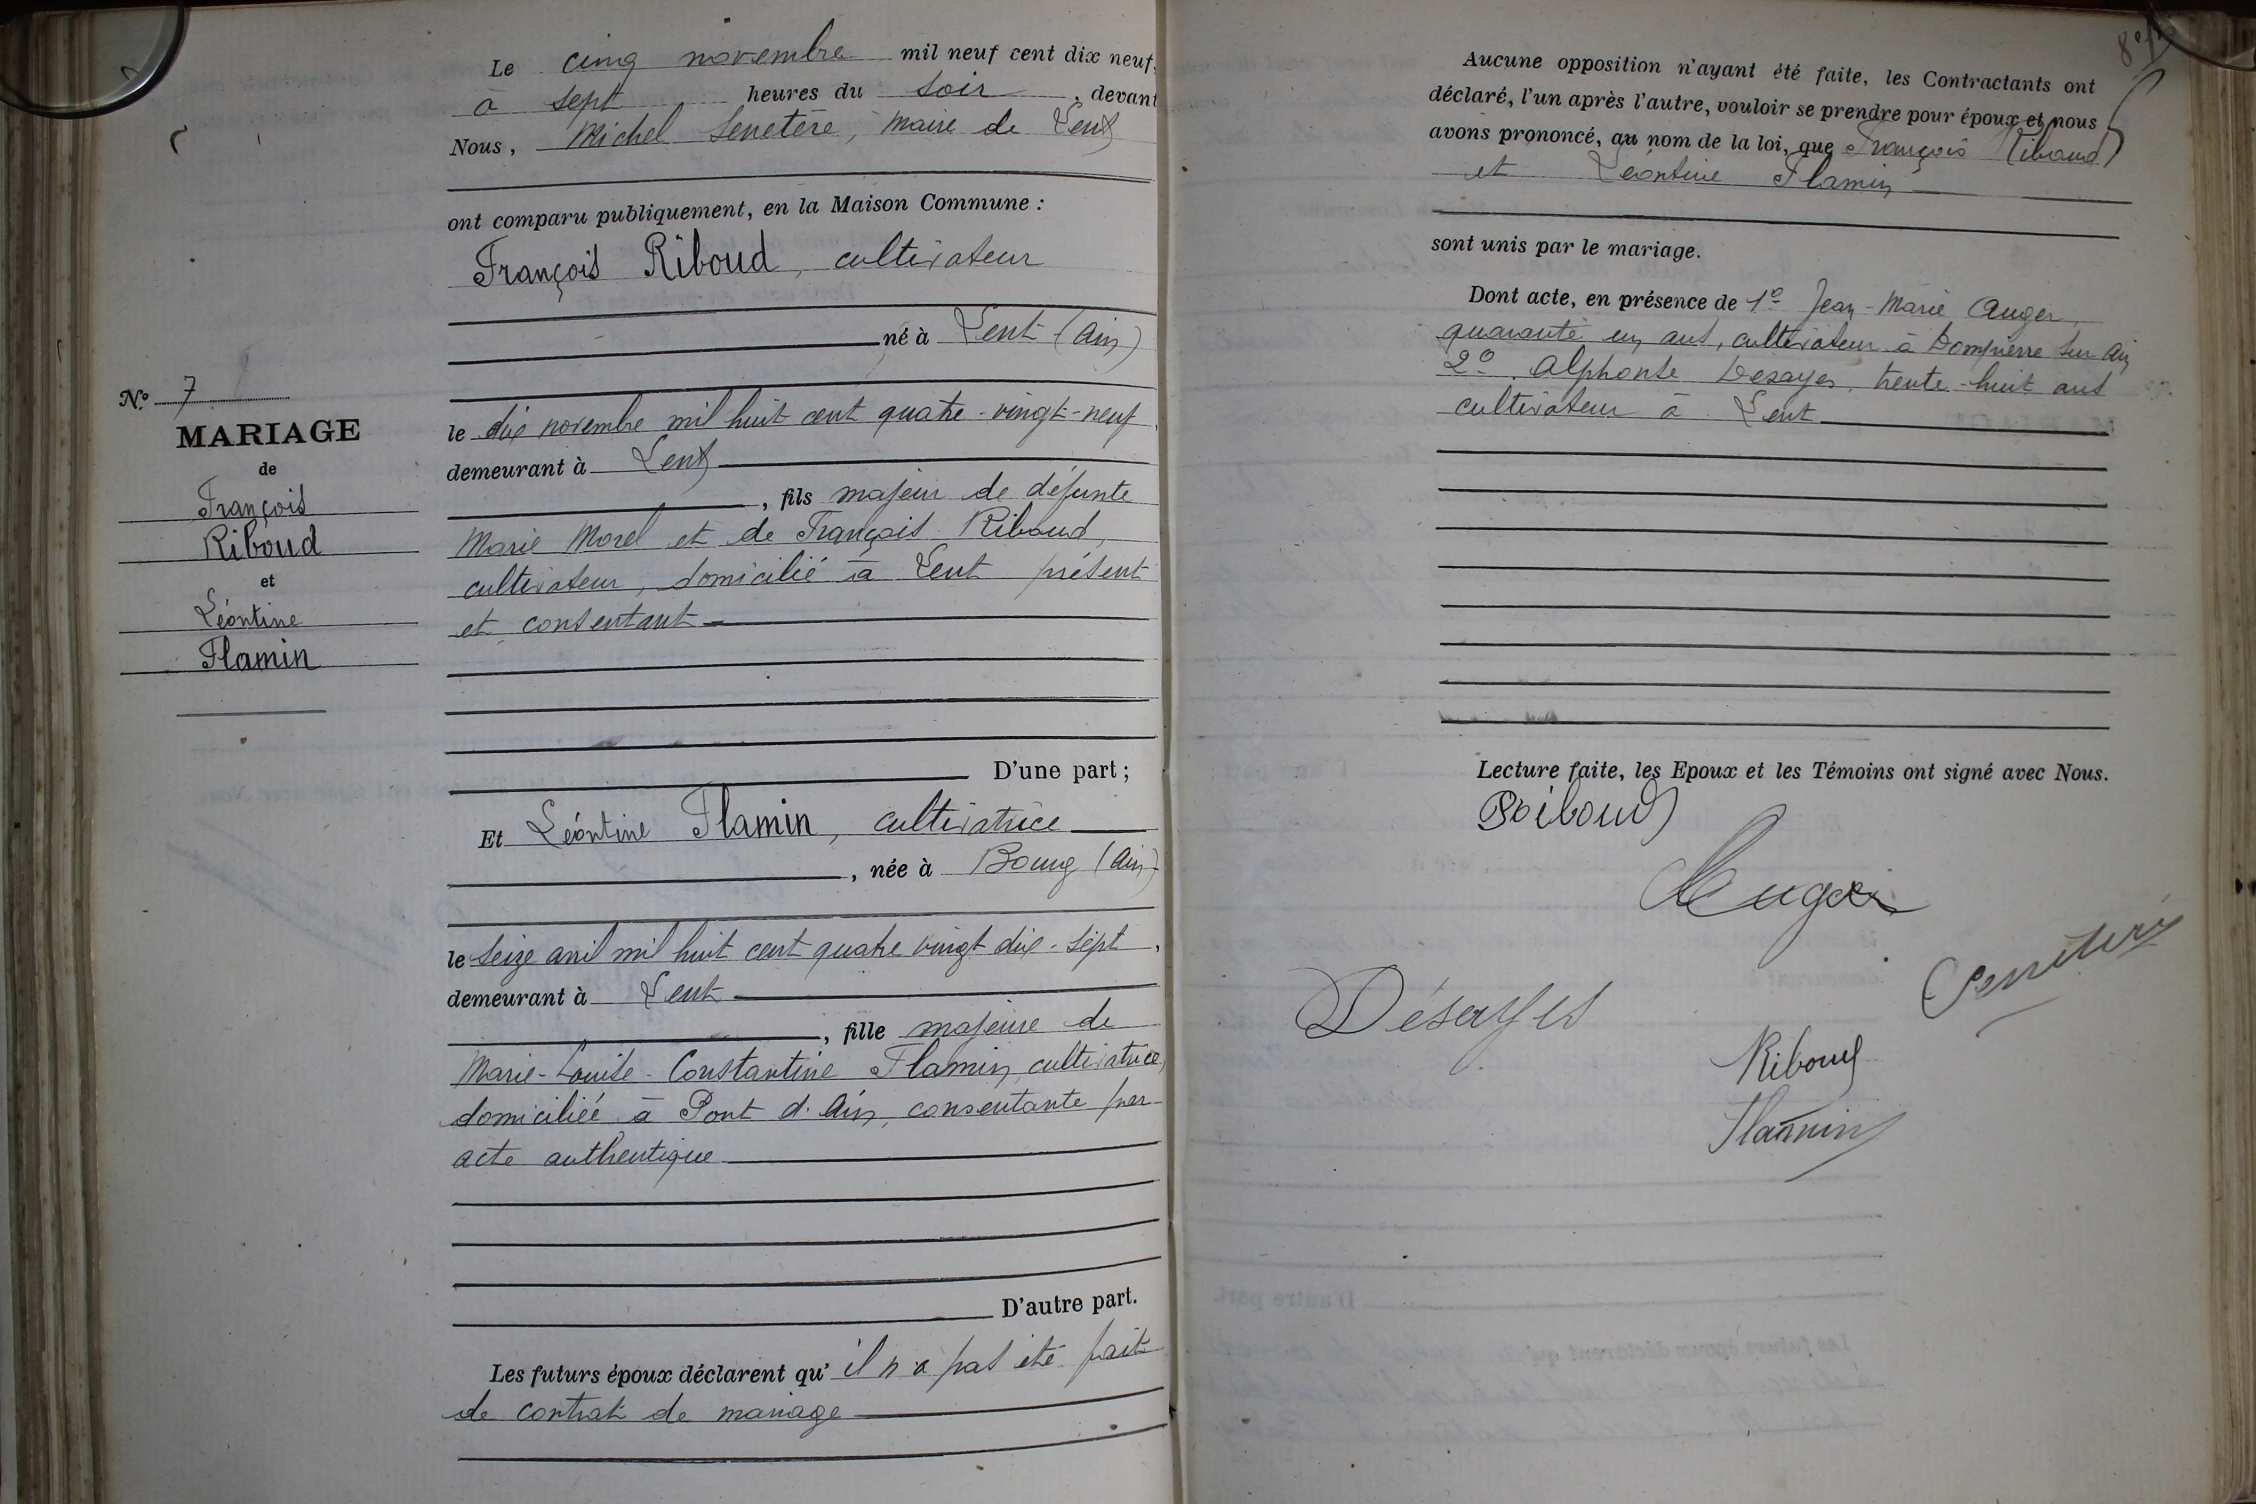 Le cinq novembre mil neuf cent dix neuf,
à sept heures du soir, devant
Nous, Michel Senetère, maire de Lent
ont comparu publiquement, en la Maison Commune :
François Riboud, cultivateur
né à Lent (Ain)
N.º 7
MARIAGE
de
François
Riboud
et
Léontine
Flamin
le dix novembre mil huit cent quatre-vingt-neuf,
demeurant à Lent
, fils majeur de défunte
Marie Morel et de François Riboud,
cultivateur, domicilié à Lent présent
et consentant
D'une part ;
Et Léontine Flamin, cultivatrice
, née à Bourg (Ain)
le seize avril mil huit cent quatre vingt dix-sept,
demeurant à Lent
, fille majeure de
Marie-Louise-Constantine Flamin, cultivatrice,
domiciliée à Pont d'Ain, consentante par
acte authentique
D'autre part.
Les futurs époux déclarent qu'il n'a pas été fait
de contrat de mariage
Aucune opposition n'ayant été faite, les Contractants ont
déclaré, l'un après l'autre, vouloir se prendre pour époux et nous
avons prononcé, au nom de la loi, que François Riboud
et Léontine Flamin
sont unis par le mariage.
Dont acte, en présence de 1º Jean-Marie Auger,
quarante un ans, cultivateur à Dompierre sur Ain
2º Alphonse Desayes, trente-huit ans
cultivateur à Lent
Lecture faite, les Epoux et les Témoins ont signé avec Nous.
Riboud
Auger
Désayes
Riboud
Flamin